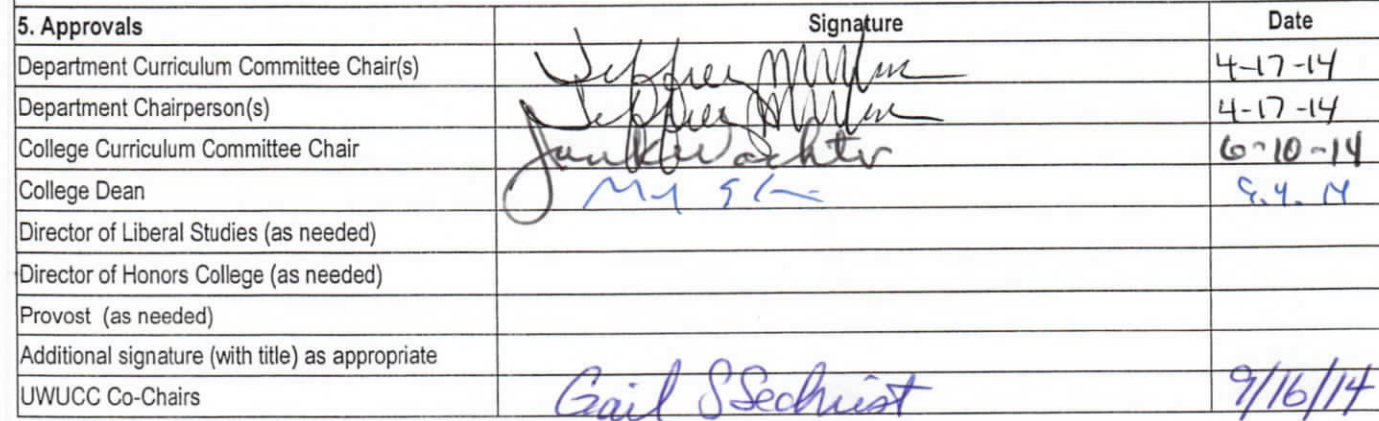 5. Approvals Signature Date
Department Curriculum Committee Chair(s) Jeffrey 4-17-14
Department Chairperson(s) Jeffrey 4-17-14
College Curriculum Committee Chair 6-10-14
College Dean
Director of Liberal Studies (as needed)
Director of Honors College (as needed)
Provost (as needed)
Additional signature (with title) as appropriate
UWUCC Co-Chairs Gail S Sechrist 9/16/14